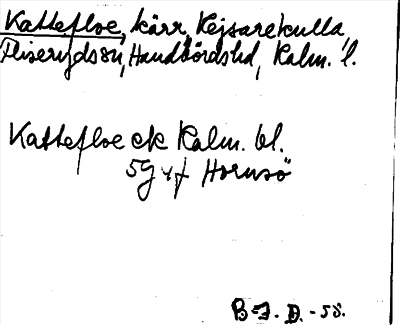 Kattefloe, kärr, Kejsarekulla,
Fliserydssn, Handbördshd, Kalm. l.
Kattefloe ek Kalm. bl.
5G Hornsö
B-J. D. -58.